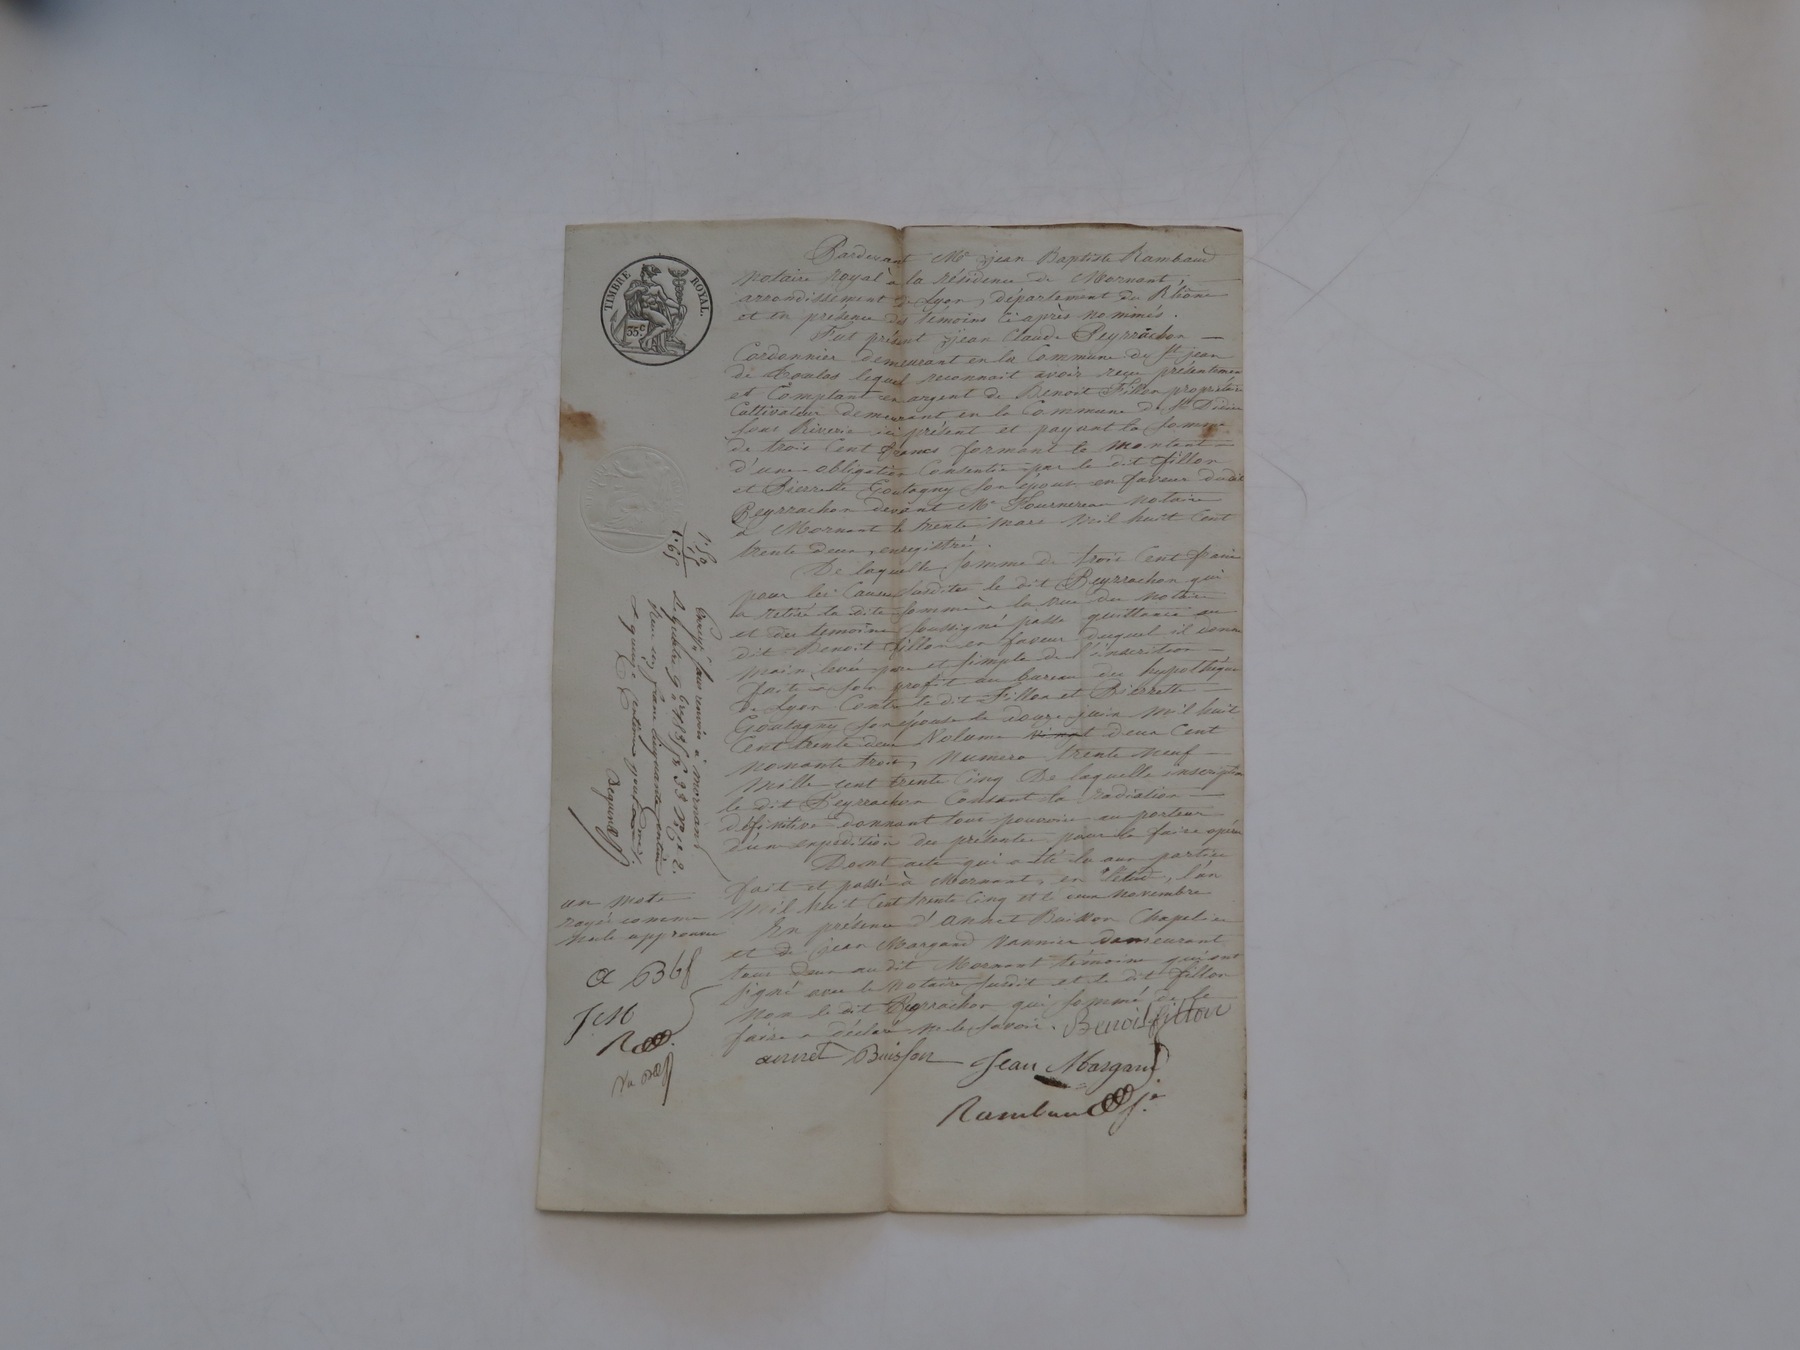 TIMBRE ROYAL.
35c
Pardevant Me jean Baptiste Rambaud
notaire royal à la résidence de Mornant,
arrondissement de Lyon, département du Rhône
et en présence des témoins ci après nommés.
Fut présent jean Claude Peyrrachon
Cordonnier demeurant en la Commune de St jean
de toulas lequel reconnait avoir reçu présentemen
et Comptant en argent de Benoit Fillon propriétaire
Cultivateur demeurant en la Commune de St Didier
sous Riverie ici présent et payant la somme
de trois Cent francs formant le montant
d'une obligation Consentie par le dit fillon
et Pierrette Goutagny son épouse en faveur dudit
Peyrrachon devant Me Fournereau notaire
à Mornant le trente mars mil huit Cent
trente deux, enregistré.
De laquelle somme de trois Cent francs
pour les Causes susdites le dit Peyrrachon qui
a retiré la dite somme à la vue du notaire
et des temoins soussigné passe quittance au
dit Benoit fillon en faveur duquel il donne
main levée pure et simple de l'inscription
faite à son profit au bureau des hypothèques
de Lyon Contre le dit Fillon et Pierrette
Goutagny son épouse le douze juin mil huit
Cent trente deux Volume vingt deux Cent
nonante trois, numero trente neuf
mille cent trente Cinq De laquelle inscription
le dit Peyrrachon Consent la radiation
définitive donnant tous pouvoirs au porteur
d'un expédition des présentes pour la faire opérer
Dont acte qui a été lu aux parties
fait et passé à Mornant, en l'étude, l'an
mil huit Cent trente Cinq et le onze novembre
En présence d'annet Buisson Chapelier
et de jean Margand vannier demeurant
tous deux au dit Mornant témoins qui ont
signé avec le notaire susdit et le dit fillon
non le dit Peyrrachon qui sommé de le
faire a déclaré ne le savoir. Benoit fillon
annet Buisson Jean Margand
Rambaud
1.50
15
1.65
Enregistré sans renvoi à mornant
le 9bre 1835 fo 33 Ro Ce 2.
Reçu un franc cinquante centimes
quinze Centimes pour
un mots
rayé comme
nulle approuvé
a B bf
J.M